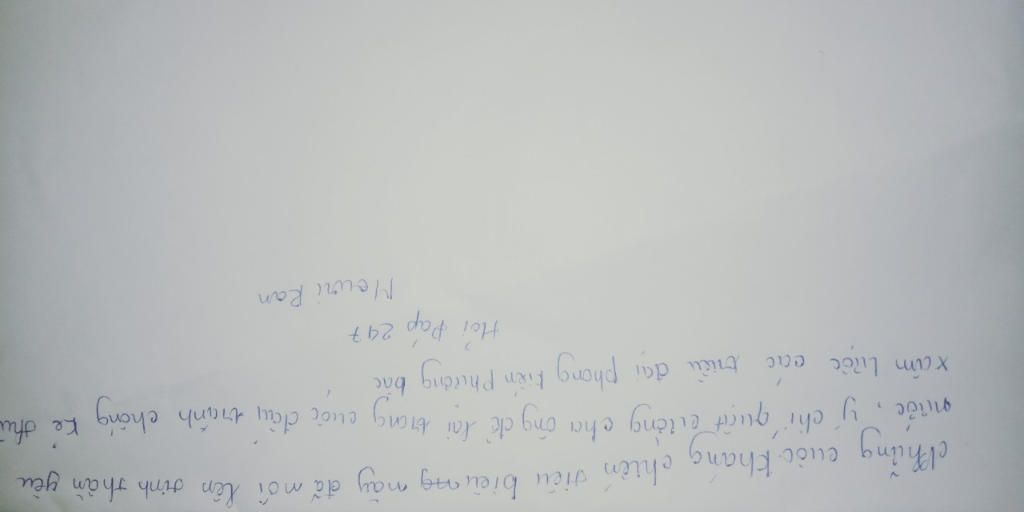 Những cuộc kháng chiến tiêu biểu này đã mới lên tinh thần yêu
nước, ý chí quật cường cha ông để lại trong cuộc đấu tranh chống kẻ thù
xâm lược các triều đại phong kiến Phương bắc
Hỏi Đáp 247